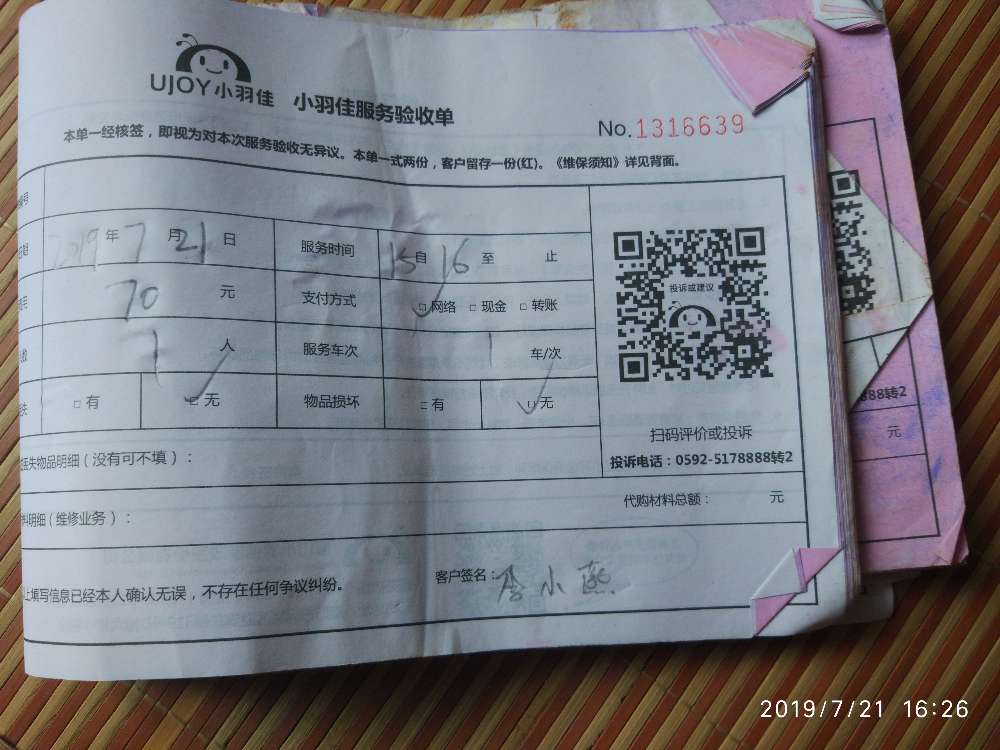 UJOY小羽佳 小羽佳服务验收单
No.1316639
本单一经核签，即视为对本次服务验收无异议。本单一式两份，客户留存一份(红)。《维保须知》详见背面。
2019 年 7 月 21 日 服务时间 15 自 16 至 止
70 元 支付方式 □网络 □现金 □转账
人 服务车次 1 车/次
□有 □无 物品损坏 □有 □无
投诉或建议
扫码评价或投诉
投诉电话：0592-5178888转2
失物品明细（没有可不填）：
代购材料总额： 元
料明细（维修业务）：
上填写信息已经本人确认无误，不存在任何争议纠纷。
客户签名：李小熙
888转2
元
2019/7/21 16:26